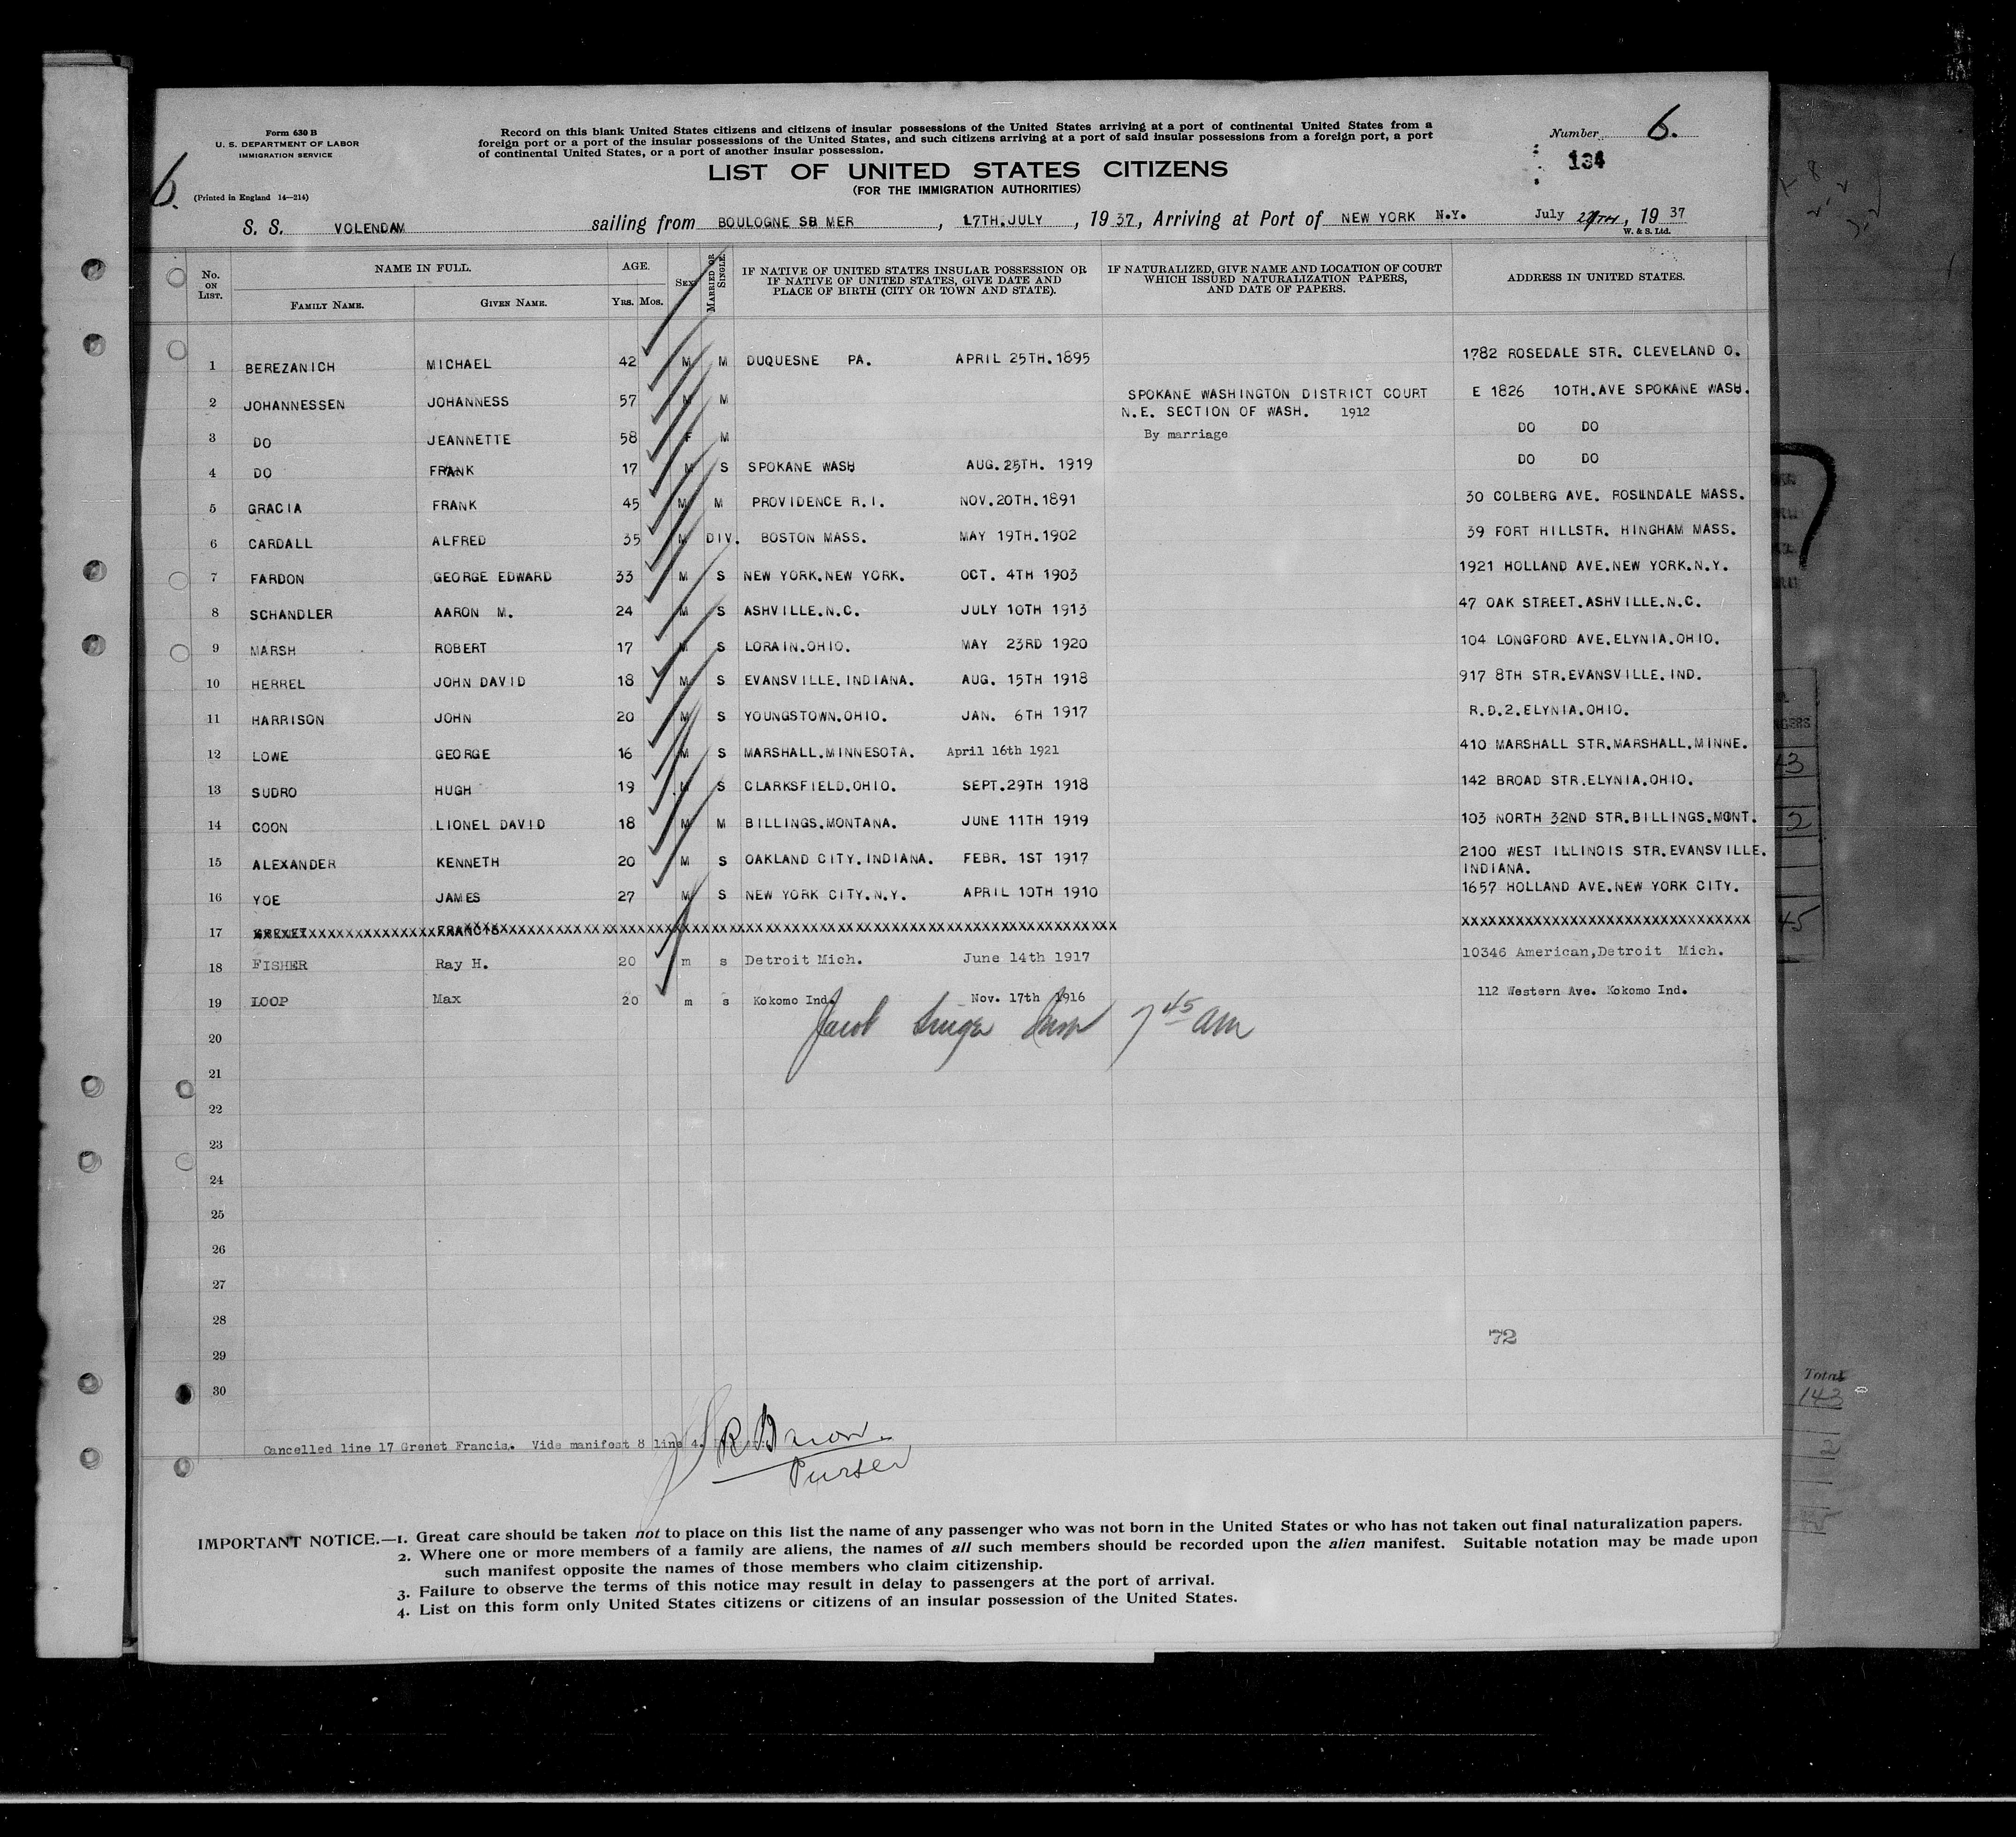 Form 630 B
U. S. DEPARTMENT OF LABOR
IMMIGRATION SERVICE
(Printed in England 14—214)
6.
Record on this blank United States citizens and citizens of insular possessions of the United States arriving at a port of continental United States from a
foreign port or a port of the insular possessions of the United States, and such citizens arriving at a port of said insular possessions from a foreign port, a port
of continental United States, or a port of another insular possession.
Number 6.
134
LIST OF UNITED STATES CITIZENS
(FOR THE IMMIGRATION AUTHORITIES)
S. S. VOLENDAM sailing from BOULOGNE SB MER , 17TH.JULY , 19 37, Arriving at Port of NEW YORK N.Y. July , 19 37
W. & S. Ltd.
No. ON LIST. NAME IN FULL. FAMILY NAME. GIVEN NAME. AGE. YRS. MOS. SEX MARRIED OR SINGLE. IF NATIVE OF UNITED STATES INSULAR POSSESSION OR IF NATIVE OF UNITED STATES, GIVE DATE AND PLACE OF BIRTH (CITY OR TOWN AND STATE). IF NATURALIZED, GIVE NAME AND LOCATION OF COURT WHICH ISSUED NATURALIZATION PAPERS, AND DATE OF PAPERS. ADDRESS IN UNITED STATES.
1 BEREZANICH MICHAEL 42 M M DUQUESNE PA. APRIL 25TH.1895 1782 ROSEDALE STR. CLEVELAND O.
2 JOHANNESSEN JOHANNESS 57 M M SPOKANE WASHINGTON DISTRICT COURT E 1826 10TH.AVE SPOKANE WASH.
N.E. SECTION OF WASH. 1912
3 DO JEANNETTE 58 F M By marriage DO DO
4 DO FRANK 17 M S SPOKANE WASH AUG.25TH. 1919 DO DO
5 GRACIA FRANK 45 M M PROVIDENCE R.I. NOV.20TH.1891 30 COLBERG AVE. ROSLINDALE MASS.
6 CARDALL ALFRED 35 M DIV. BOSTON MASS. MAY 19TH.1902 39 FORT HILLSTR. HINGHAM MASS.
7 FARDON GEORGE EDWARD 33 M S NEW YORK.NEW YORK. OCT. 4TH 1903 1921 HOLLAND AVE.NEW YORK.N.Y.
8 SCHANDLER AARON M. 24 M S ASHVILLE.N.C. JULY 10TH 1913 47 OAK STREET.ASHVILLE.N.C.
9 MARSH ROBERT 17 M S LORAIN.OHIO. MAY 23RD 1920 104 LONGFORD AVE.ELYNIA.OHIO.
10 HERREL JOHN DAVID 18 M S EVANSVILLE.INDIANA. AUG. 15TH 1918 917 8TH STR.EVANSVILLE.IND.
11 HARRISON JOHN 20 M S YOUNGSTOWN.OHIO. JAN. 6TH 1917 R.D.2.ELYNIA.OHIO.
12 LOWE GEORGE 16 M S MARSHALL.MINNESOTA. April 16th 1921 410 MARSHALL STR.MARSHALL.MINNE.
13 SUDRO HUGH 19 M S CLARKSFIELD.OHIO. SEPT.29TH 1918 142 BROAD STR.ELYNIA.OHIO.
14 COON LIONEL DAVID 18 M M BILLINGS.MONTANA. JUNE 11TH 1919 103 NORTH 32ND STR.BILLINGS.MONT.
15 ALEXANDER KENNETH 20 M S OAKLAND CITY.INDIANA. FEBR. 1ST 1917 2100 WEST ILLINOIS STR.EVANSVILLE.
INDIANA.
16 YOE JAMES 27 M S NEW YORK CITY.N.Y. APRIL 10TH 1910 1657 HOLLAND AVE.NEW YORK CITY.
17 GRENET FRANCIS
18 FISHER Ray H. 20 m s Detroit Mich. June 14th 1917 10346 American,Detroit Mich.
19 LOOP Max 20 m s Kokomo Ind. Nov. 17th 1916 112 Western Ave. Kokomo Ind.
Jacob 7 45 am
20
21
22
23
24
25
26
27
28
72
29
30
Cancelled line 17 Grenet Francis. Vide manifest 8 line 4.
Purser
IMPORTANT NOTICE.—1. Great care should be taken not to place on this list the name of any passenger who was not born in the United States or who has not taken out final naturalization papers.
2. Where one or more members of a family are aliens, the names of all such members should be recorded upon the alien manifest. Suitable notation may be made upon
such manifest opposite the names of those members who claim citizenship.
3. Failure to observe the terms of this notice may result in delay to passengers at the port of arrival.
4. List on this form only United States citizens or citizens of an insular possession of the United States.
Total
143
2